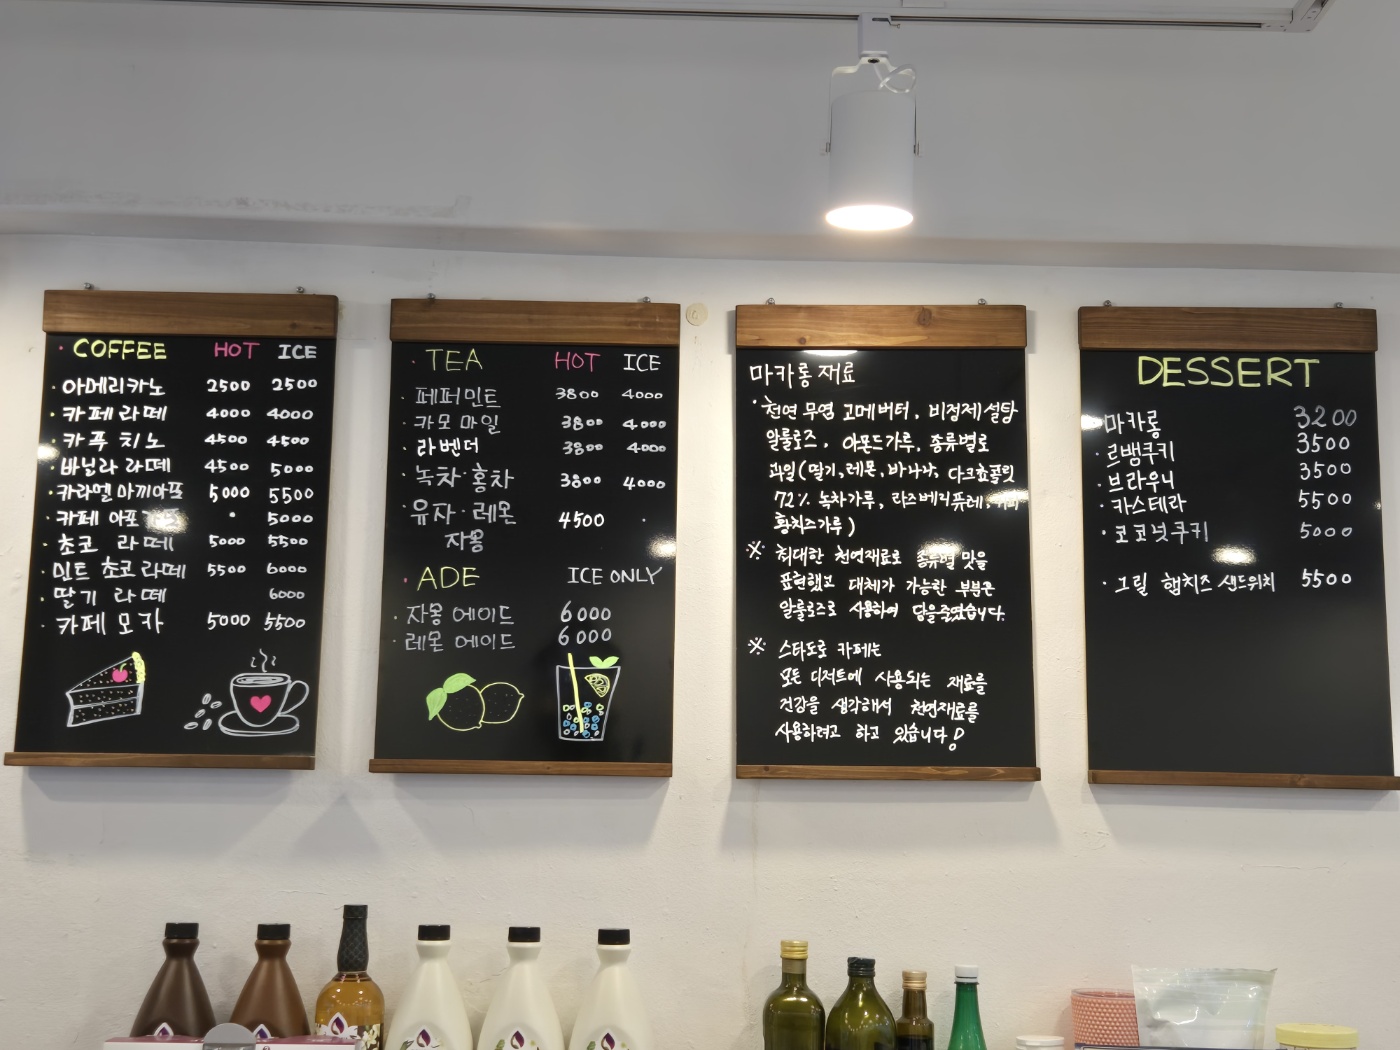 · COFFEE HOT ICE
· 아메리카노 2500 2500
· 카페라떼 4000 4000
· 카푸치노 4500 4500
· 바닐라 라떼 4500 5000
· 카라멜 마끼아또 5000 5500
· 카페 아포가토 · 5000
· 초코 라떼 5000 5500
· 민트 초코 라떼 5500 6000
· 딸기 라떼 6000
· 카페 모카 5000 5500
· TEA HOT ICE
· 페퍼민트 3800 4000
· 카모마일 3800 4000
· 라벤더 3800 4000
· 녹차·홍차 3800 4000
· 유자·레몬 4500 ·
자몽
· ADE ICE ONLY
· 자몽 에이드 6000
· 레몬 에이드 6000
마카롱 재료
· 천연 무염 고메버터, 비정제 설탕
알룰로즈, 아몬드가루, 종류별로
과일(딸기,레몬,바나나, 다크쵸콜릿
72%, 녹차가루, 라즈베리퓨레,
황치즈가루)
※ 최대한 천연재료로 종류별 맛을
표현했고 대체가 가능한 부분은
알룰로즈로 사용하여 당을줄였습니다.
※ 스타도로 카페는
모든 디저트에 사용되는 재료를
건강을 생각해서 천연재료를
사용하려고 하고 있습니다!
DESSERT
· 마카롱 3200
· 르뱅쿠키 3500
· 브라우니 3500
· 카스테라 5500
· 코코넛쿠키 5000
· 그릴 햄치즈 샌드위치 5500